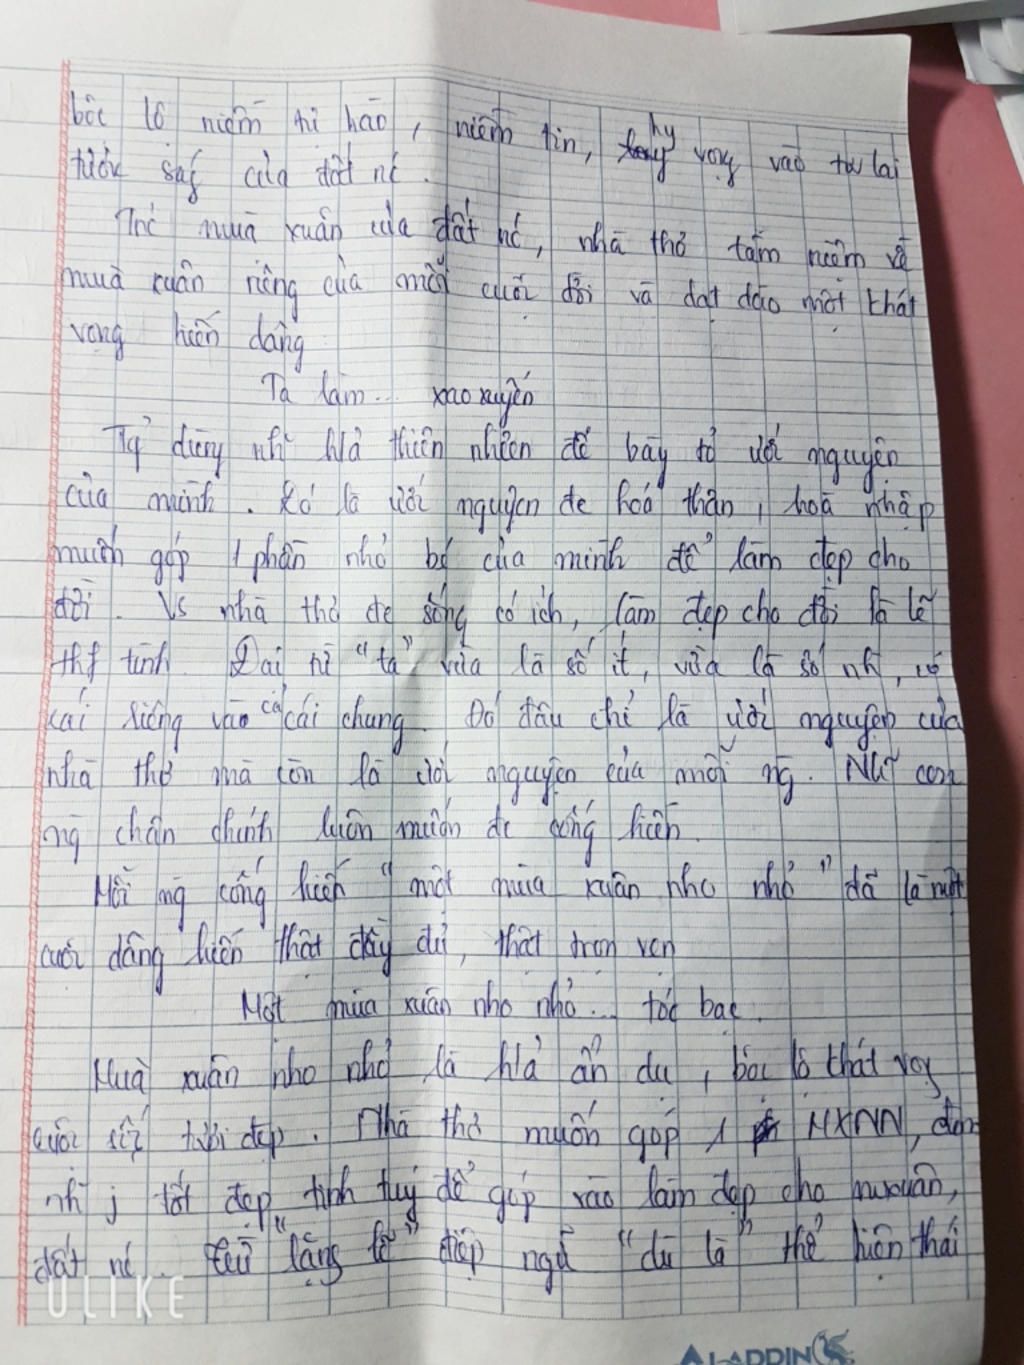 bôc lô niềm tự hào, niềm tin, hy vọng vào tư lai
tươi ság của đất nc.
Trc mùa xuân của đất nc, nhà thơ tâm niệm về
mùa xuân riêng của mỗi cuôc đời và dạt dào một khát
vọng hiến dâng
Ta làm... xao xuyến
Tg dùng nh~ h/ả thiên nhiên để bày tỏ ước nguyện
của mình. Đó là ước nguyện đc hoá thân, hoà nhập
muốn góp 1 phần nhỏ bé của mình để làm đẹp cho
đời. Vs nhà thơ đc sống có ích, làm đẹp cho đời là lẽ
thg tình. Đại từ "ta" vừa là số ít, vừa là số nh~, có
cái riêng vào cả cái chung. Đó đâu chỉ là ước nguyện của
nhà thơ mà còn là ước nguyện của mỗi ng. Nh~ con
ng chân chính luôn muốn đc cống hiến.
Mỗi ng cống hiến "một mùa xuân nho nhỏ" đã là một
cuôc dâng hiến thật đầy đủ, thật trọn vẹn
Một mùa xuân nho nhỏ... tóc bạc.
Mùa xuân nho nhỏ là h/ả ẩn dụ, bôc lộ khát vọg
cuôc sốg tươi đẹp. Nhà thơ muốn góp 1 MXNN, đem
nh~ j tốt đẹp tinh tuý để góp vào làm đẹp cho mxuân,
đất nc. Từ "lặng lẽ" điệp ngữ "dù là" thể hiện thái
ULIKE
ALADDIN